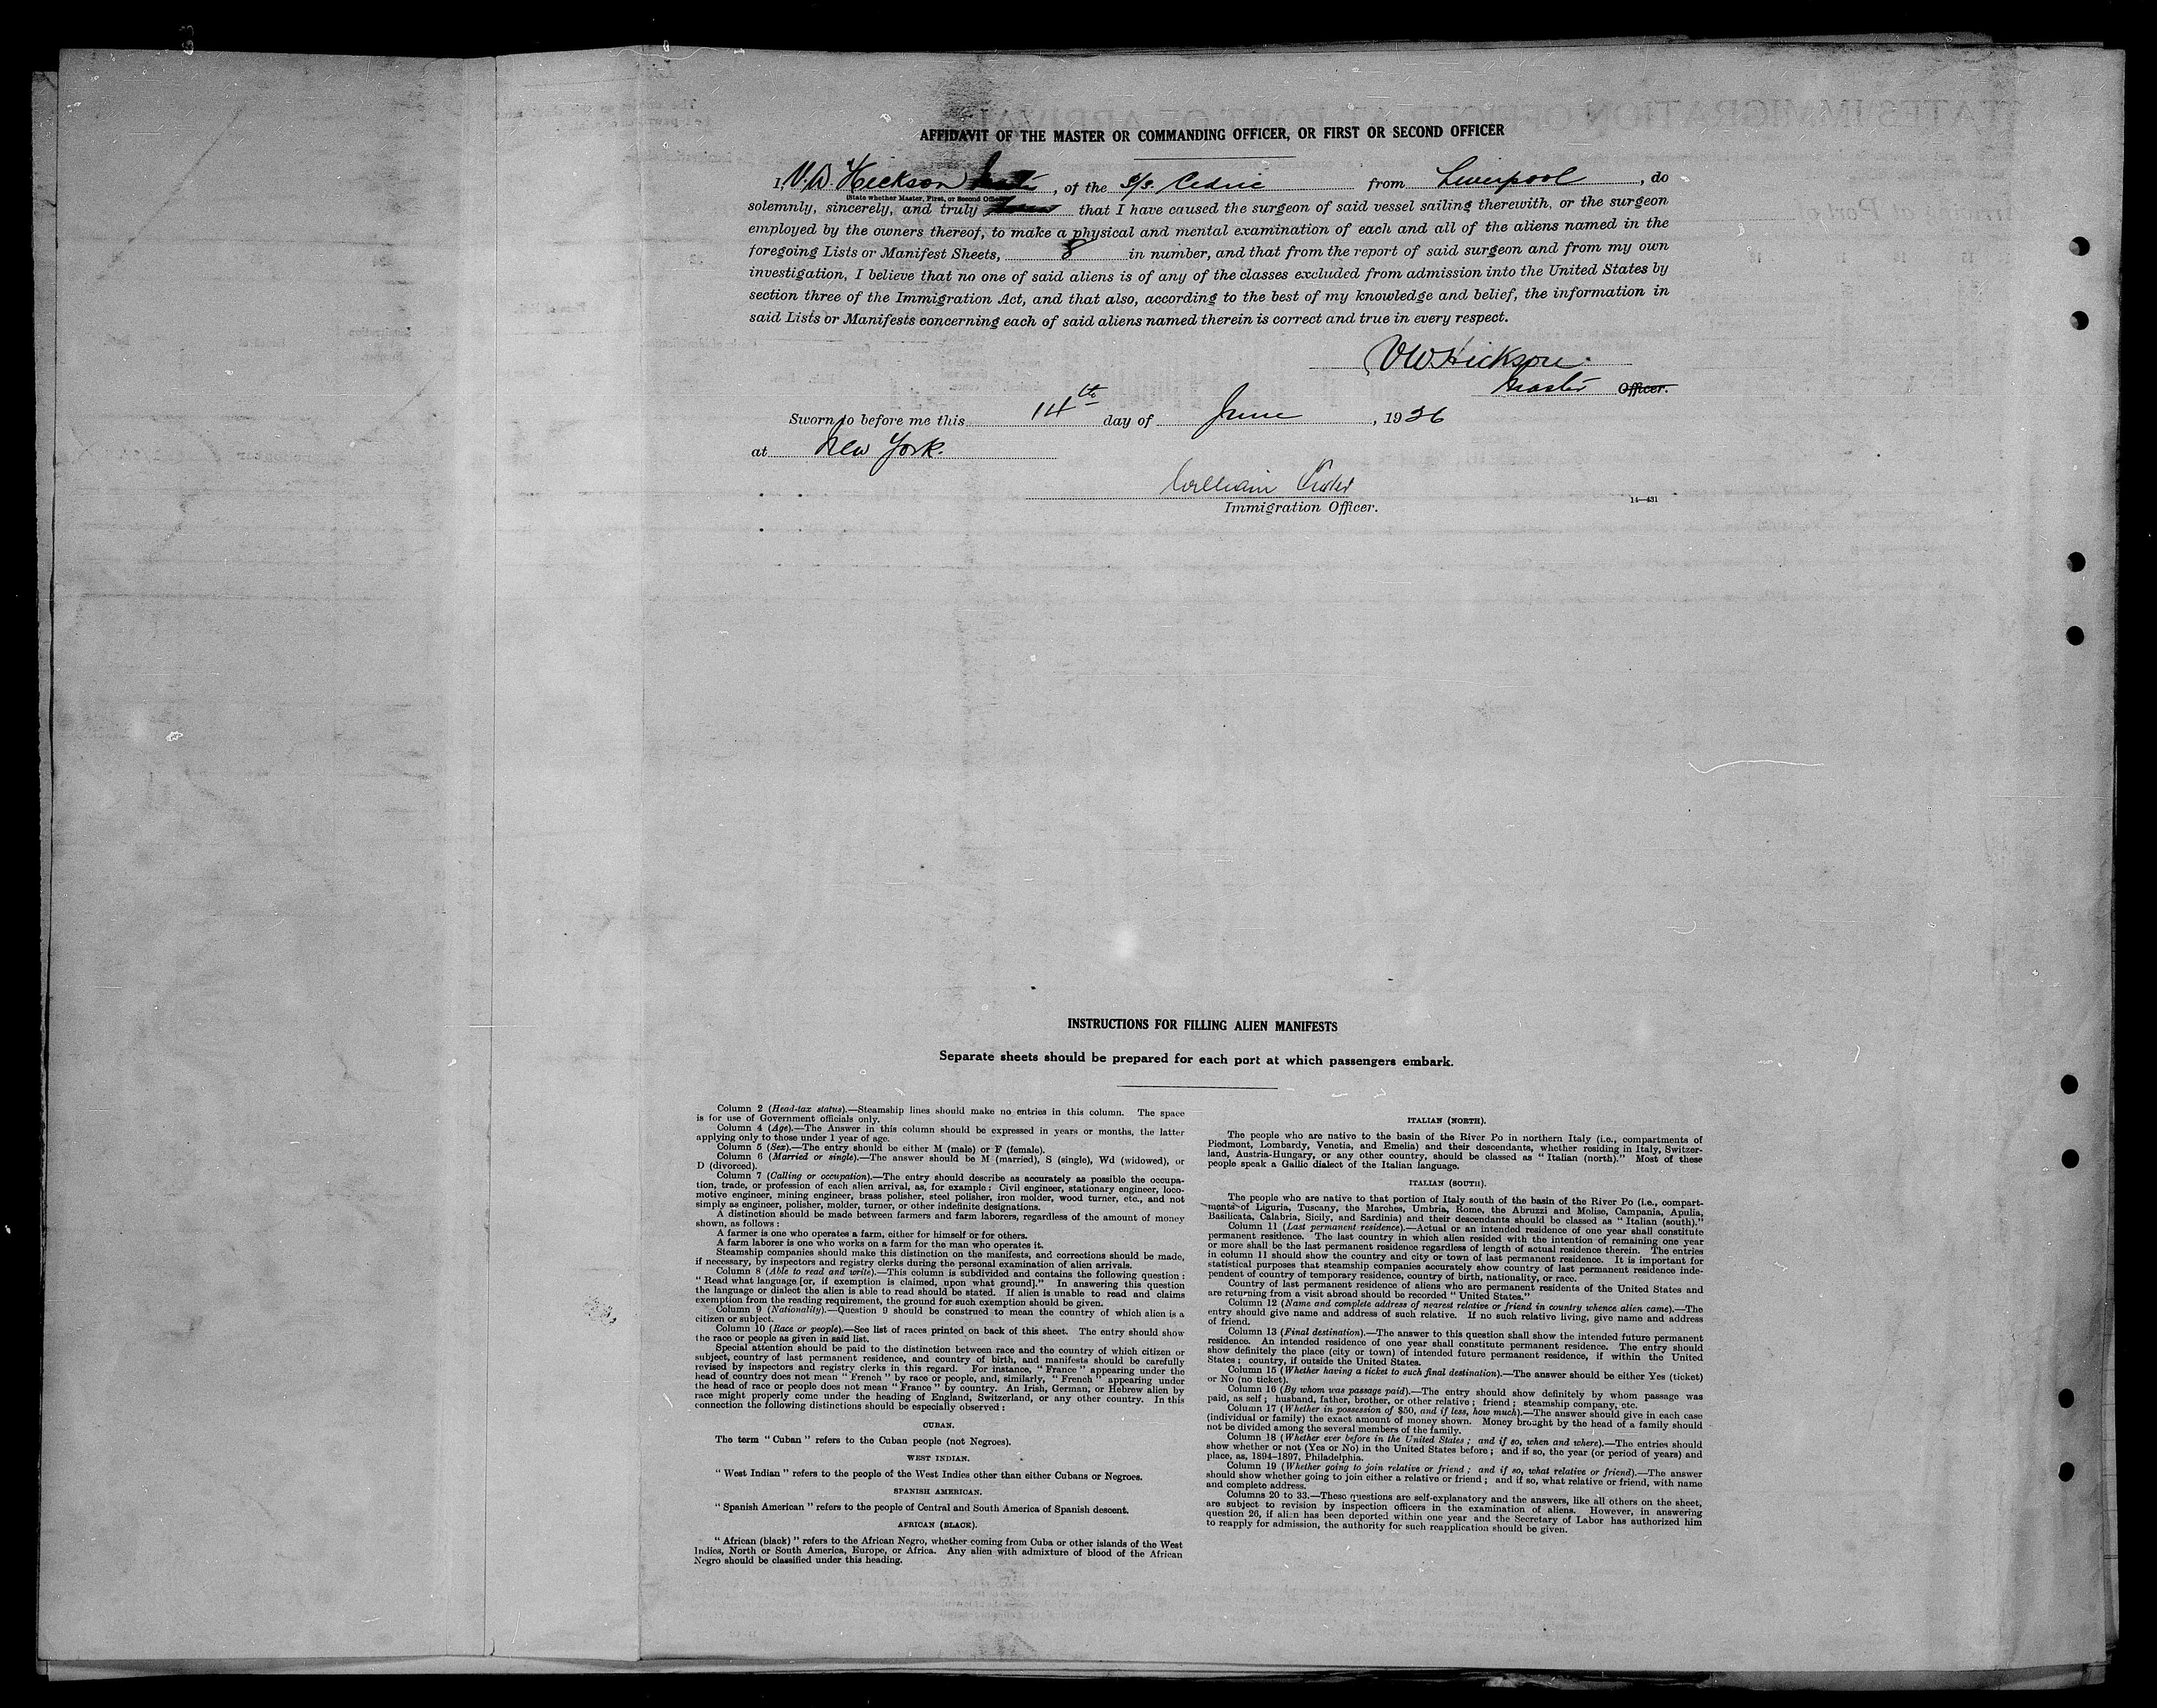 AFFIDAVIT OF THE MASTER OR COMMANDING OFFICER, OR FIRST OR SECOND OFFICER
I, V.W. Hickson, of the S/S. Cedric from Liverpool, do
(State whether Master, First, or Second Officer)
solemnly, sincerely, and truly that I have caused the surgeon of said vessel sailing therewith, or the surgeon
employed by the owners thereof, to make a physical and mental examination of each and all of the aliens named in the
foregoing Lists or Manifest Sheets, 8 in number, and that from the report of said surgeon and from my own
investigation, I believe that no one of said aliens is of any of the classes excluded from admission into the United States by
section three of the Immigration Act, and that also, according to the best of my knowledge and belief, the information in
said Lists or Manifests concerning each of said aliens named therein is correct and true in every respect.
VW Hickson.
Master Officer.
Sworn to before me this 14th day of June, 1926
at New York.
William
Immigration Officer.
14—431
INSTRUCTIONS FOR FILLING ALIEN MANIFESTS
Separate sheets should be prepared for each port at which passengers embark.
Column 2 (Head-tax status).—Steamship lines should make no entries in this column. The space
is for use of Government officials only.
Column 4 (Age).—The Answer in this column should be expressed in years or months, the latter
applying only to those under 1 year of age.
Column 5 (Sex).—The entry should be either M (male) or F (female).
Column 6 (Married or single).—The answer should be M (married), S (single), Wd (widowed), or
D (divorced).
Column 7 (Calling or occupation).—The entry should describe as accurately as possible the occupa-
tion, trade, or profession of each alien arrival, as, for example: Civil engineer, stationary engineer, loco-
motive engineer, mining engineer, brass polisher, steel polisher, iron molder, wood turner, etc., and not
simply as engineer, polisher, molder, turner, or other indefinite designations.
A distinction should be made between farmers and farm laborers, regardless of the amount of money
shown, as follows:
A farmer is one who operates a farm, either for himself or for others.
A farm laborer is one who works on a farm for the man who operates it.
Steamship companies should make this distinction on the manifests, and corrections should be made,
if necessary, by inspectors and registry clerks during the personal examination of alien arrivals.
Column 8 (Able to read and write).—This column is subdivided and contains the following question:
"Read what language [or, if exemption is claimed, upon what ground]." In answering this question
the language or dialect the alien is able to read should be stated. If alien is unable to read and claims
exemption from the reading requirement, the ground for such exemption should be given.
Column 9 (Nationality).—Question 9 should be construed to mean the country of which alien is a
citizen or subject.
Column 10 (Race or people).—See list of races printed on back of this sheet. The entry should show
the race or people as given in said list.
Special attention should be paid to the distinction between race and the country of which citizen or
subject, country of last permanent residence, and country of birth, and manifests should be carefully
revised by inspectors and registry clerks in this regard. For instance, "France" appearing under the
head of country does not mean "French" by race or people, and, similarly, "French" appearing under
the head of race or people does not mean "France" by country. An Irish, German, or Hebrew alien by
race might properly come under the heading of England, Switzerland, or any other country. In this
connection the following distinctions should be especially observed:
CUBAN.
The term "Cuban" refers to the Cuban people (not Negroes).
WEST INDIAN.
"West Indian" refers to the people of the West Indies other than either Cubans or Negroes.
SPANISH AMERICAN.
"Spanish American" refers to the people of Central and South America of Spanish descent.
AFRICAN (BLACK).
"African (black)" refers to the African Negro, whether coming from Cuba or other islands of the West
Indies, North or South America, Europe, or Africa. Any alien with admixture of blood of the African
Negro should be classified under this heading.
ITALIAN (NORTH).
The people who are native to the basin of the River Po in northern Italy (i.e., compartments of
Piedmont, Lombardy, Venetia, and Emelia) and their descendants, whether residing in Italy, Switzer-
land, Austria-Hungary, or any other country, should be classed as "Italian (north)." Most of these
people speak a Gallic dialect of the Italian language.
ITALIAN (SOUTH).
The people who are native to that portion of Italy south of the basin of the River Po (i.e., compart-
ments of Liguria, Tuscany, the Marches, Umbria, Rome, the Abruzzi and Molise, Campania, Apulia,
Basilicata, Calabria, Sicily, and Sardinia) and their descendants should be classed as "Italian (south)."
Column 11 (Last permanent residence).—Actual or an intended residence of one year shall constitute
permanent residence. The last country in which alien resided with the intention of remaining one year
or more shall be the last permanent residence regardless of length of actual residence therein. The entries
in column 11 should show the country and city or town of last permanent residence. It is important for
statistical purposes that steamship companies accurately show country of last permanent residence inde-
pendent of country of temporary residence, country of birth, nationality, or race.
Country of last permanent residence of aliens who are permanent residents of the United States and
are returning from a visit abroad should be recorded "United States."
Column 12 (Name and complete address of nearest relative or friend in country whence alien came).—The
entry should give name and address of such relative. If no such relative living, give name and address
of friend.
Column 13 (Final destination).—The answer to this question shall show the intended future permanent
residence. An intended residence of one year shall constitute permanent residence. The entry should
show definitely the place (city or town) of intended future permanent residence, if within the United
States; country, if outside the United States.
Column 15 (Whether having a ticket to such final destination).—The answer should be either Yes (ticket)
or No (no ticket).
Column 16 (By whom was passage paid).—The entry should show definitely by whom passage was
paid, as self; husband, father, brother, or other relative; friend; steamship company, etc.
Column 17 (Whether in possession of $50, and if less, how much).—The answer should give in each case
(individual or family) the exact amount of money shown. Money brought by the head of a family should
not be divided among the several members of the family.
Column 18 (Whether ever before in the United States; and if so, when and where).—The entries should
show whether or not (Yes or No) in the United States before; and if so, the year (or period of years) and
place, as, 1894–1897, Philadelphia.
Column 19 (Whether going to join relative or friend; and if so, what relative or friend).—The answer
should show whether going to join either a relative or friend; and if so, what relative or friend, with name
and complete address.
Columns 20 to 33.—These questions are self-explanatory and the answers, like all others on the sheet,
are subject to revision by inspection officers in the examination of aliens. However, in answering
question 26, if alien has been deported within one year and the Secretary of Labor has authorized him
to reapply for admission, the authority for such reapplication should be given.